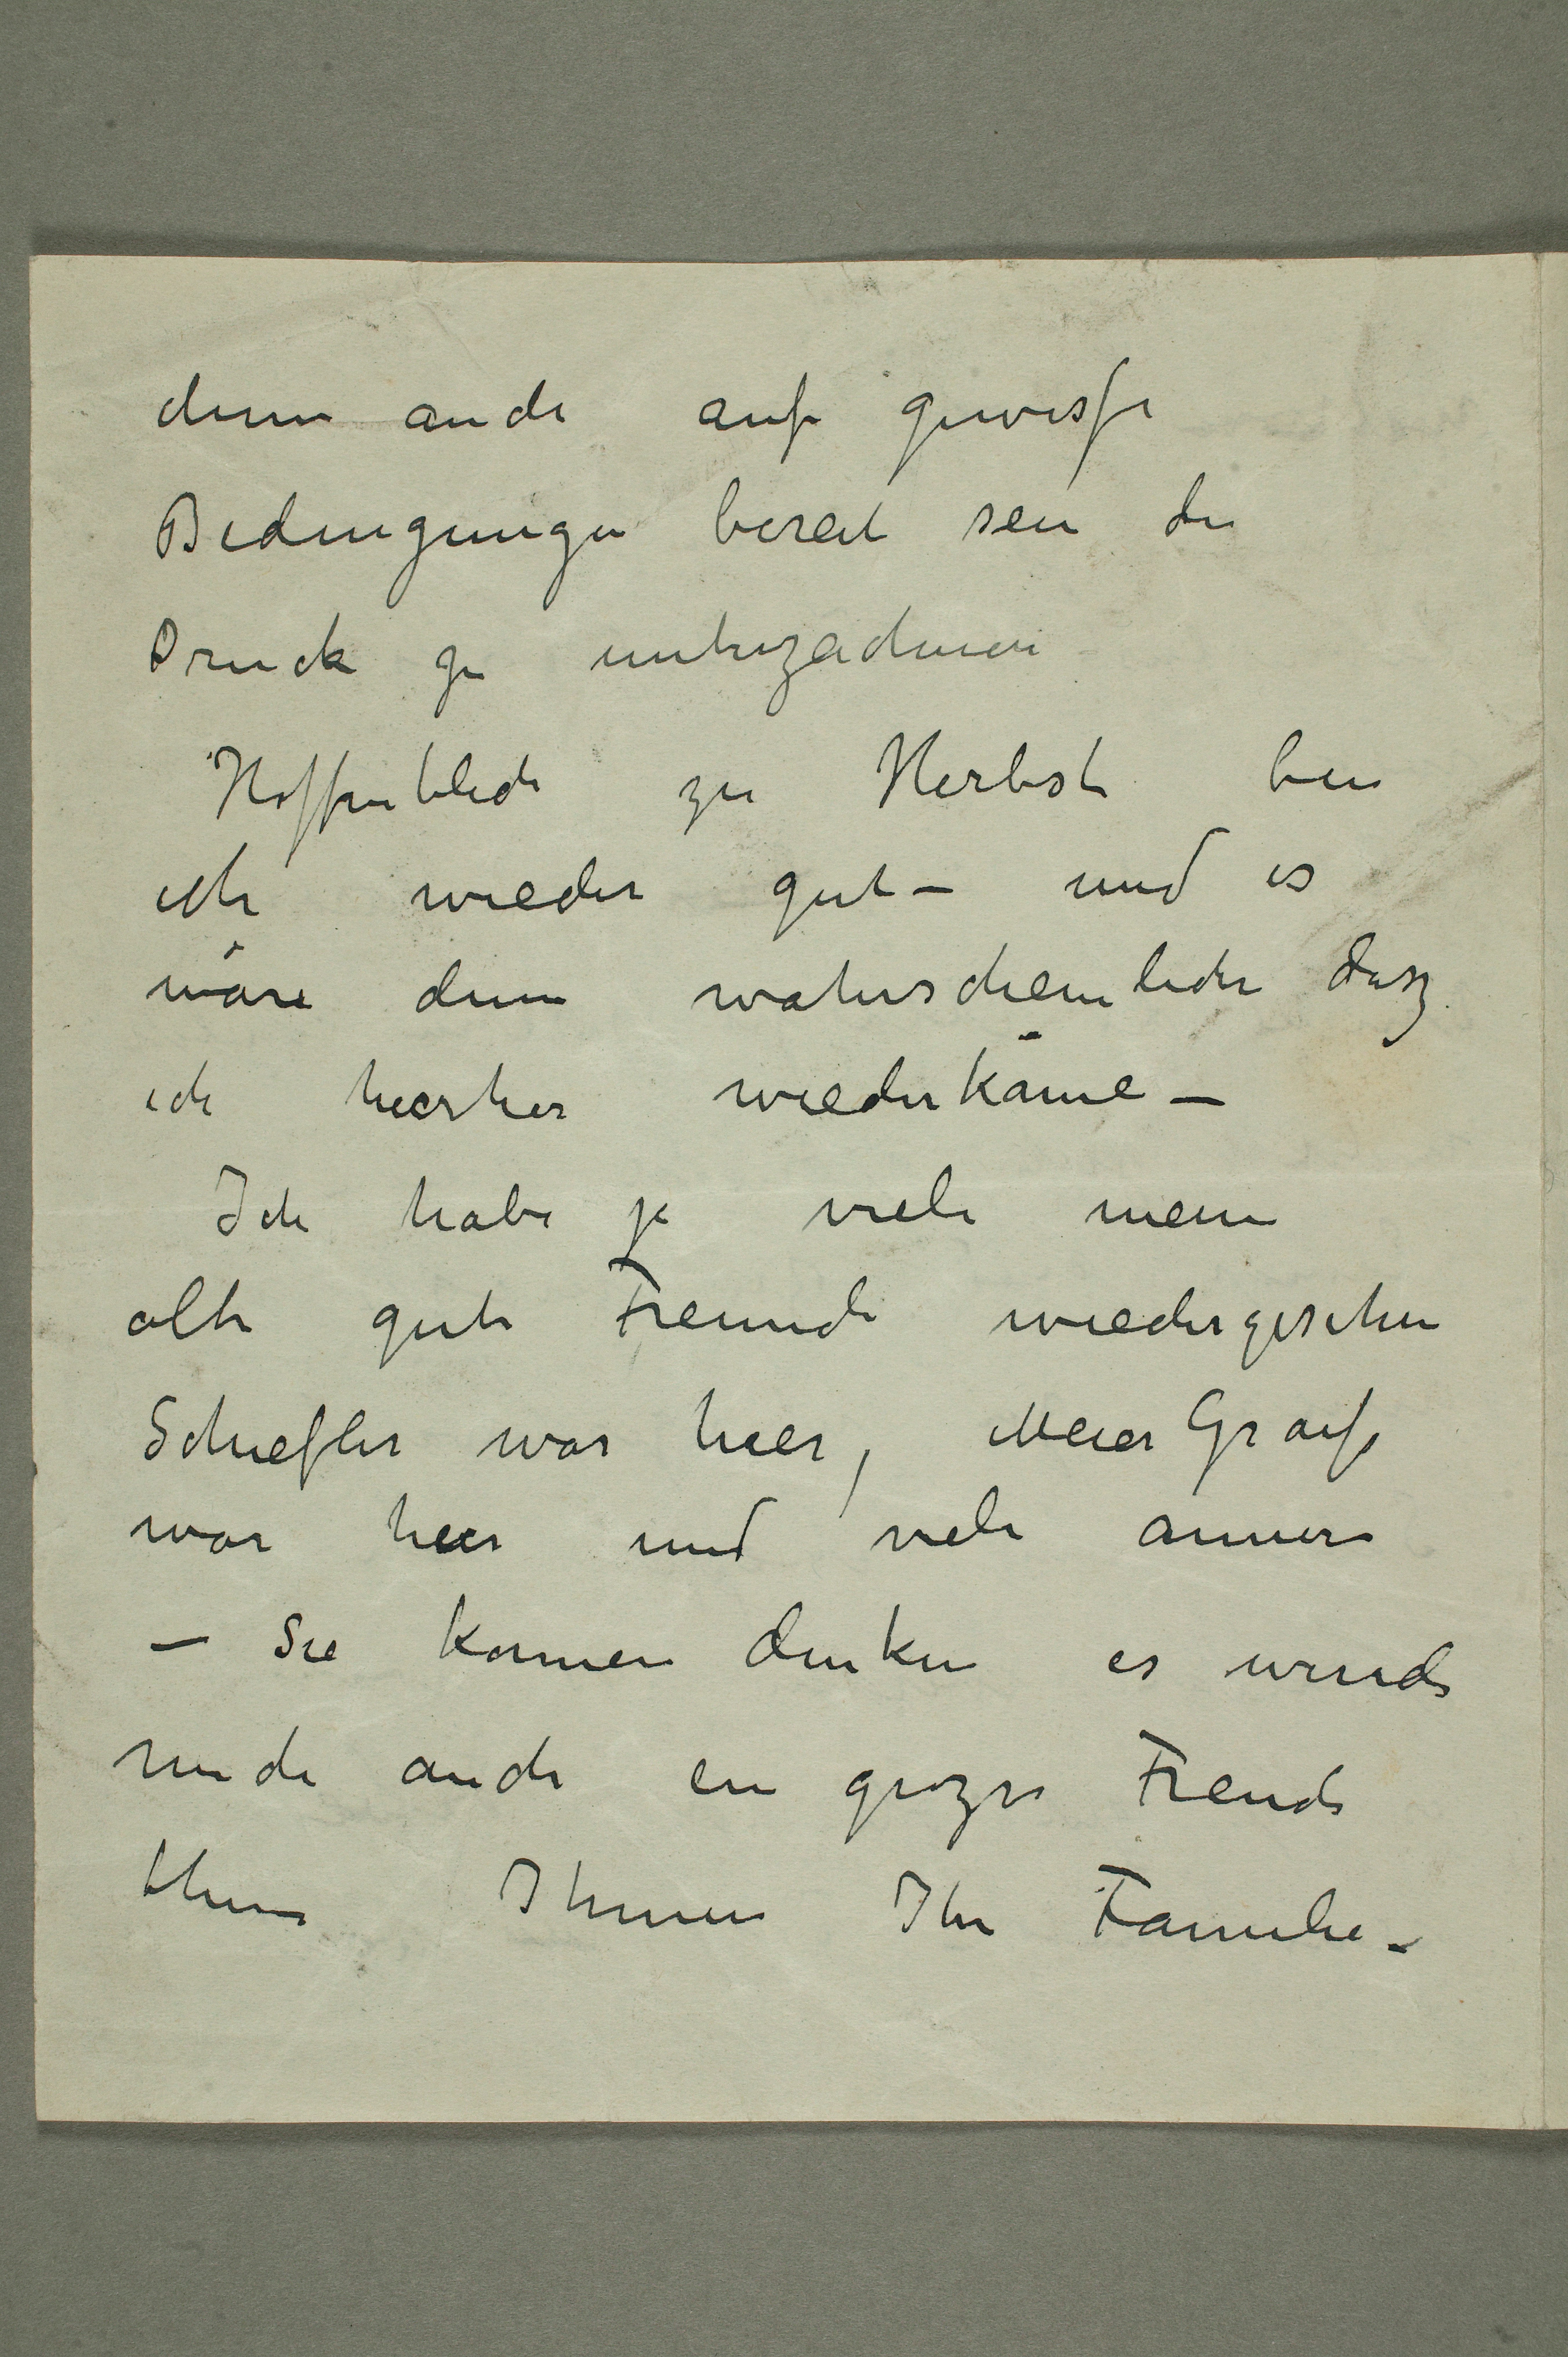 denn auch auf gewisse
Bedingungen bereit sein die
Druck zu unterzeichnen
Hoffentlich zu Herbst bin
ich wieder gut – und es
wäre denn wahrscheinlich dasz
ich hierher wiederkäme –
Ich habe ja viele meine
alte gute Freunde wiedergesehen
Schiefler war hier, Meier Graefe
war hier und viele annere
– Sie können denken es würde
mich auch ein grozse Freude
thun Ihnen Ihr Familie –